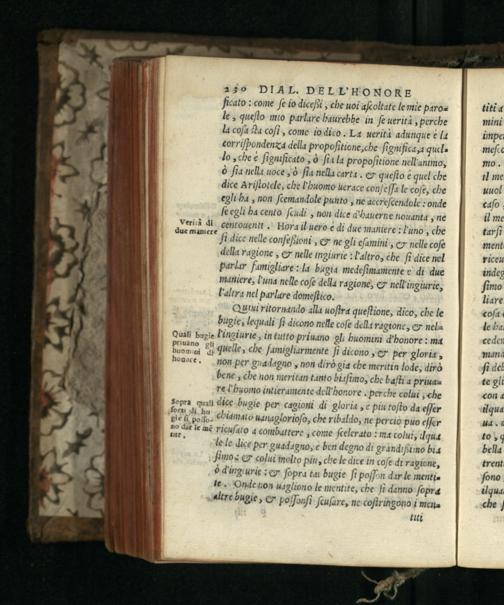 230 DIAL. DELL'HONORE
ficato: come se io dicessi, che uoi ascoltate le mie paro-
le, questo mio parlare haurebbe in se uerità, perche
la cosa sta così, come io dico. La uerità adunque è la
corrispondenza della propositione, che significa, a quel-
lo, che è significato, ò sia la propositione nell'animo,
ò sia nella uoce, ò sia nella carta. & questo è quel che
dice Aristotele, che l'huomo uerace confessa le cose, che
egli ha, non scemandole punto, ne accrescendole: onde
se egli ha cento scudi, non dice d'hauerne nouanta, ne
centouenti. Hora il uero è di due maniere: l'uno, che
si dice nelle confessioni, & ne gli esamini, & nelle cose
della ragione, & nelle ingiurie: l'altro, che si dice nel
parlar famigliare: la bugia medesimamente è di due
maniere, l'una nelle cose della ragione, & nell'ingiurie,
l'altra nel parlare domestico.
Quiui ritornando alla uostra questione, dico, che le
bugie, lequali si dicono nelle cose della ragione, & nel-
l'ingiurie, in tutto priuano gli huomini d'honore: ma
quelle, che famigliarmente si dicono, & per gloria,
non per guadagno, non dirò già che meritin lode, dirò
bene, che non meritan tanto biasimo, che basti a priua-
re l'huomo intieramente dell'honore. perche colui, che
dice bugie per cagioni di gloria, è piu tosto da esser
chiamato uanaglorioso, che ribaldo, ne percio puo esser
ricusato a combattere, come scelerato: ma colui, ilqua
le le dice per guadagno, è ben degno di grandissimo bia
simo: & colui molto piu, che le dice in cose di ragione,
ò d'ingiurie: & sopra tai bugie si posson dar le menti-
te. Onde non uagliono le mentite, che si danno sopra
altre bugie, & possonsi scusare, ne costringono i men-
titi
Verità di
due maniere
Quali bugie
priuano gli
huomini di
honore.
Sopra quali
sorti di bu
gie si posso-
no dar le mē
tite.
titi a
mini
impe
mesce
mo.
il me
uuol
caso
il me
tarsi
mente
riceu
indeg
simo
liare
cosa
le ha
ceden
si de
con
ilqua
bella
trent
sono
ilqua
che s